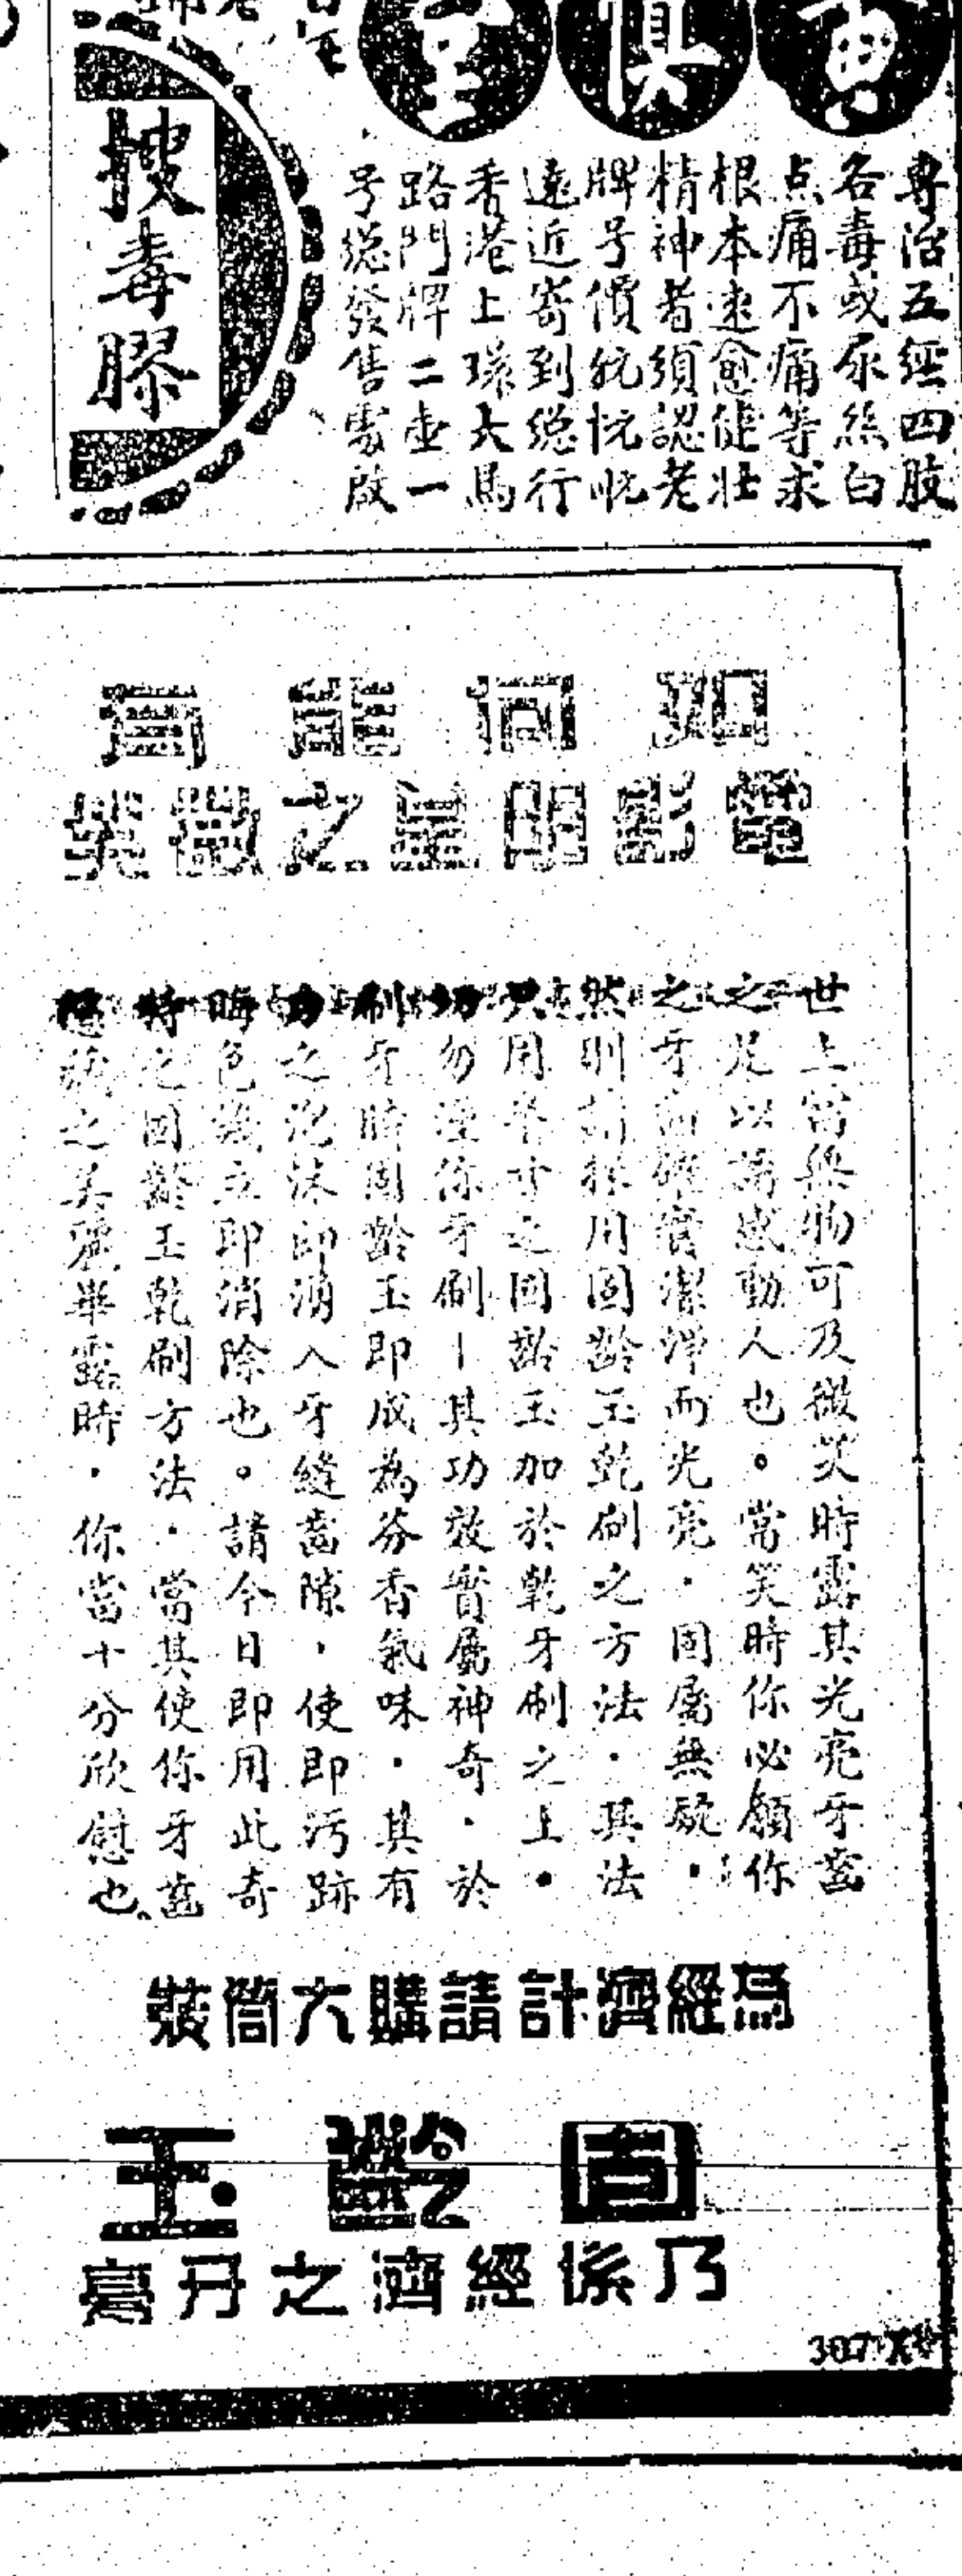 搜毒膠
專治五經四肢
各毒或尿絲白
点痛不痛等求
根本速愈健壯
精神者須認老
牌号價
遠近寄到總行
香港上環大馬
路門牌二壹一
号總發售處啟
如何能有
電影明星之微笑
世上當無物可及微笑時露其光亮牙齒
之足以誘惑動人也。當笑時你必願你
之牙齒堅實潔淨而光亮．固屬無疑．
然則請採用固齡玉乾刷之方法．其法
只用半寸之固齡玉加於乾牙刷之上．
切勿溼你牙刷－其功效實屬神奇．於
刷牙時固齡玉即成為芬香氣味．其有
力之泡沫即湧入牙縫齒隙．使即污跡
晦色立即消除也。請今日即用此奇
特之固齡玉乾刷方法．當其使你牙齒
隱藏之美麗畢露時．你當十分欣慰也
為經濟計請購大筒裝
固齡玉
乃係經濟之牙膏
307